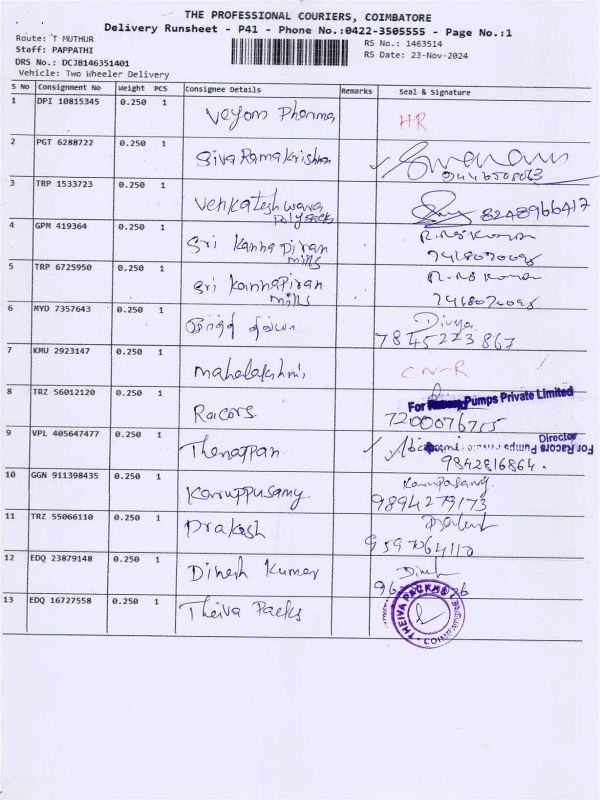 THE PROFESSIONAL COURIERS, COIMBATORE
Delivery Runsheet - P41 - Phone No.:0422-3505555 - Page No.:1
Route: 'T MUTHUR
RS No.: 1463514
Staff: PAPPATHI
RS Date: 23-Nov-2024
DRS No.: DCJB146351401
Vehicle: Two Wheeler Delivery
S No Consignment No Weight PCS Consignee Details Remarks Seal & Signature
1 DPI 10815345 0.250 1 Veyom Pharma HR
2 PGT 6288722 0.250 1 Siva Ramakrishnan
3 TRP 1533723 0.250 1 Venkateshwara 8248966417
polysacks
4 GPM 419364 0.250 1 Sri Kannapiran
mills
5 TRP 6725950 0.250 1 Sri Kannapiran
mills
6 MYD 7357643 0.250 1 Divya
7845223867
7 KMU 2923147 0.250 1 mahalakshmi CN-R
8 TRZ 56012120 0.250 1 Racors For Pumps Private Limited
7200076755
Director
9 VPL 405647477 0.250 1 Thenappan For Racors Pumps Private Limited
9842816864.
10 GGN 911398435 0.250 1 Karuppusamy Karupasamy
9894279173
11 TRZ 55066110 0.250 1 Prakash
9597064110
12 EDQ 23879148 0.250 1 Dinesh Kumar
13 EDQ 16727558 0.250 1 Theiva Packs THEIVA PACKS COIMBATORE